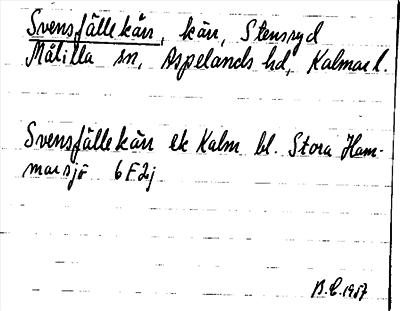 Svensfällekärr, kärr, Stensryd
Målilla sn, Aspelands hd, Kalmar l.
Svensfällekärr ek Kalm bl. Stora Ham-
marsjö 6F2j
B.E. 1957